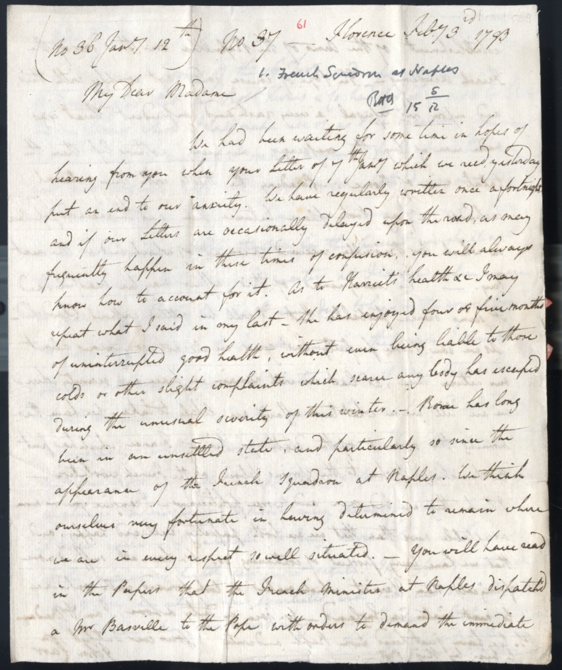 61
(No 36 Jany 12th) No 37 - Florence Feby 3rd 1793
1. French Squadron at Naples
My Dear Madam
15 5/12
We had been waiting for some time in hopes of
hearing from you when your Letter of 7th Jany which we recd yesterday
put an end to our anxiety. We have regularly written once a fortnight
and if our Letters are occasionally delayed upon the road, as may
frequently happen in these times of confusion, you will always
know how to account for it. As to Harriets health &c I may
repeat what I said in my last - She has enjoyed four or five months
of uninterrupted good health, without even being liable to those
colds or other slight complaints which scarce any body has escaped
during the unusual severity of this winter. - Rome has long
been in an unsettled state, and particularly so since the
appearance of the French Squadron at Naples. We think
ourselves very fortunate in having determined to remain where
we are in every respect so well situated. - You will have read
in the Papers that the French Minister at Naples dispatched
a Mr Basville to the Pope with orders to demand the immediate